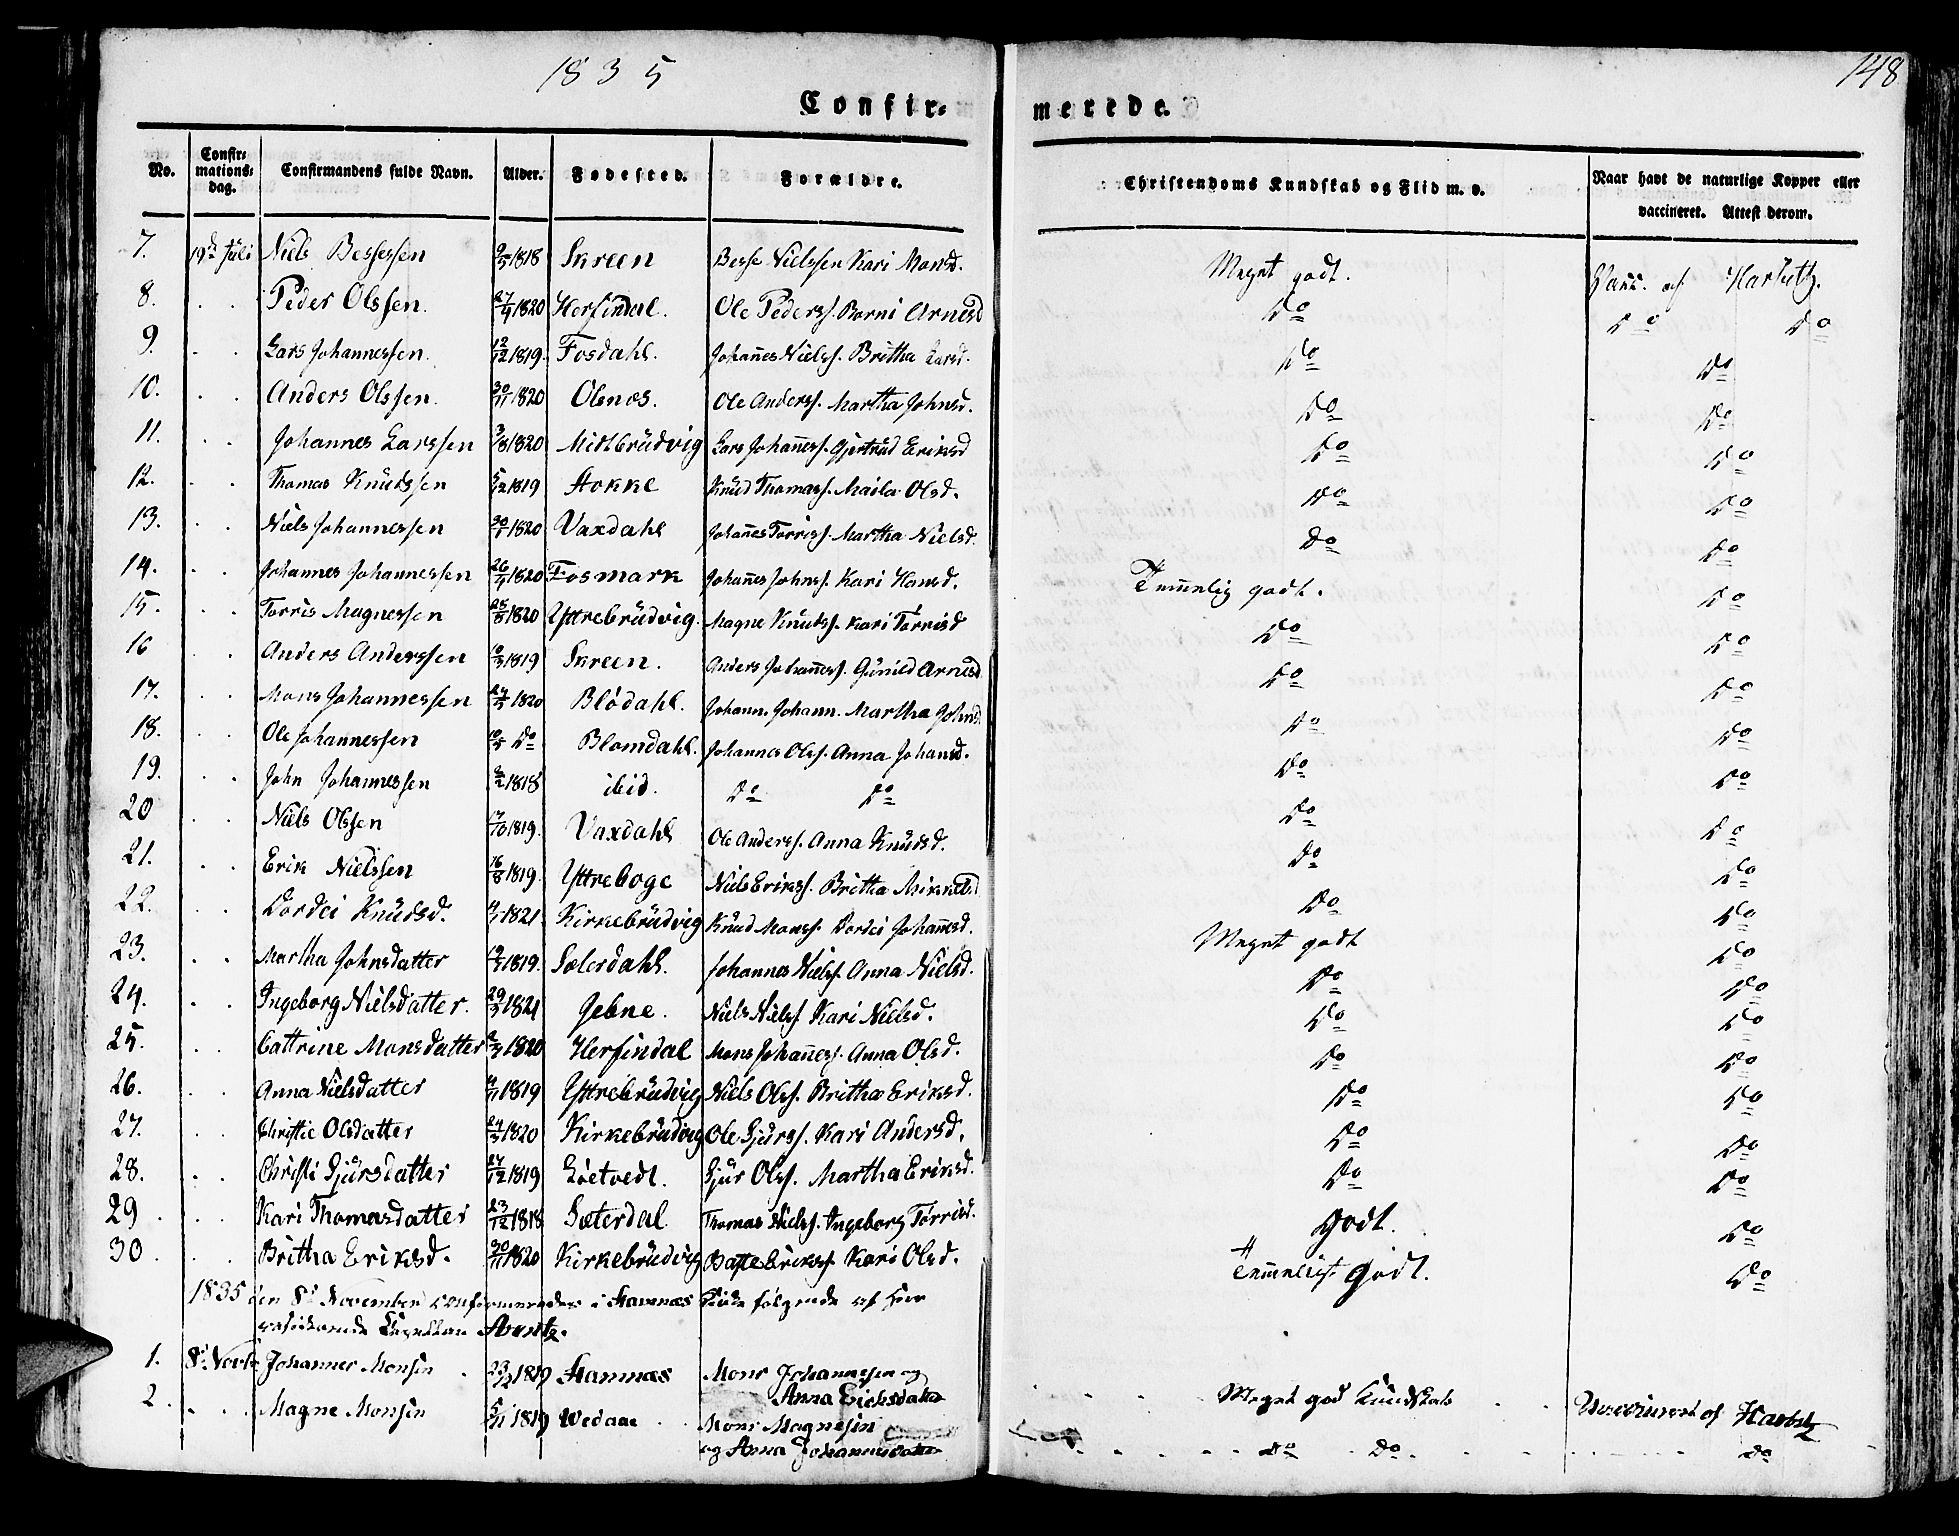 1835
148
Confir-
merede.
No. Confir-mations-dag. Confirmandens fulde Navn. Alder. Fødested. Forældre. Christendoms Kundskab og Flid m. v. Naar havt de naturlige Kopper eller vaccineret. Attest derom.
7. 19de Juli Niels Bessessen 9/5 1818 Skreen Besse Nielssen Kari Monsd. Meget godt. Vacc. af Harbitz.
8. . . Peder Olssen. 27/4 1820 Herfindal. Ole Pederss. Borni Arnesd Do Do Do
9. . . Lars Johannessen. 12/12 1819. Fosdahl. Johannes Nielss. Britha Larsd. Do Do
10. . . Anders Olssen. 30/11 1820 Olsnæs. Ole Anderss. Martha Johnsd. Do Do
11. . . Johannes Larssen 3/8 1820 Midtbrüdvig Lars Johanness. Gjertrüd Eriksd Do Do
12. . . Thomas Knüdssen 5/12 1819 Stokke Knüd Thomass. Maila Olsd. Do Do
13. . . Niels Johannessen 30/1 1820 Vaxdahl Johannes Torriss. Martha Nielsd. Do Do
14. . . Johannes Johannessen 26/4 1820 Fosmark Johannes Johnss. Kari Hansd. Temmelig godt. Do
15. . . Torris Magnessen 25/8 1820 Yttrebrüdvig. Magne Knüdss. Kari Torrisd Do Do
16 . . Anders Anderssen 10/3 1819 Skreen. Anders Johanness. Günild Arnesd Do Do
17. . . Mons Johannessen 24/5 1820 Blødahl. Johann. Johann. Martha Johnsd. Do Do
18. . . Ole Johannessen 10/5 Do Blomdahl. Johannes Olss. Anna Johansd. Do Do
19. . . John Johannessen 2/2 1818 ibid. Do Do Do Do
20 . . Niels Olssen 17/10 1819. Vaxdahl Ole Anderss. Anna Knüdsd. Do Do
21. . . Erik Nielssen 16/8 1819. Yttreboge Niels Erikss. Britha Mikkelsd Do Do
22. . . Dordei Knüdsd. 1821. Kirkebrüdvig Knüd Monss. Dordei Johannesd. Do Do
23. . . Martha Johnsdatter 1819. Sæterdahl. Johannes Nielss. Anna Nielsd. Meget godt Do
24. . . Ingeborg Nielsdatter. 29/3 1821 Jebne. Niels Nielss. Kari Nielsd. Do Do
25. . . Cattrine Monsdatter 1820 Herfindal Mons Johanness. Anna Olsd. Do Do
26. . . Anna Nielsdatter 1819 Yttrebrüdvig Niels Olss. Britha Eriksd. Do Do
27. . . Christie Olsdatter 24/5 1820 Kirkebrüdvig Ole Sjurss. Kari Andersd. Do Do
28. . . Christi Sjürsdatter 27/12 1819 Løetvedt. Sjür Olss. Martha Eriksd. Do Do
29. . . Kari Thomasdatter 23/12 1818 Sæterdal. Thomas Nielss. Ingeborg Torrisd. Godt. Do
30. . . Britha Eriksd. 30/11 1820 Kirkebrüdvig Erikss. Kari Olsd. Temmelig godt. Do
1835 den 8de November confirmeredes i Stamnæs Kirke følgende af Herr
Capellan Arentz.
1. 8de Novbr Johannes Monsen 23/12 1819 Stamnæs Mons Johannessen og
Anna Erichsdatter Meget god Kundskab Vaccineret af Harbitz
2. . . . Magne Monsen 5/11 1819 Wedaae Mons Magnesen
og Anna Johannesdatter Do Do. Do